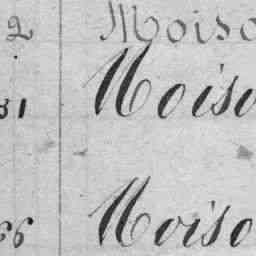 2 Moiso
31 Moiso
66 Moiso